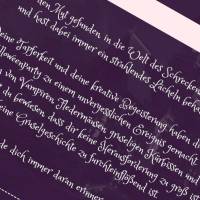 den Mut gefunden in die Welt des Schreckens
und hast dabei immer ein strahlendes Lächeln
Deine Tapferkeit und deine kreative Begeisterung haben di
Halloweenparty zu einem unvergesslichen Ereignis gemacht.
von Vampiren, Fledermäusen, gruseligen Kürbissen und
du bewiesen, dass dir keine Herausforderung zu groß ist
eine Gruselgeschichte zu furchteinflößend ist.
de dich immer daran